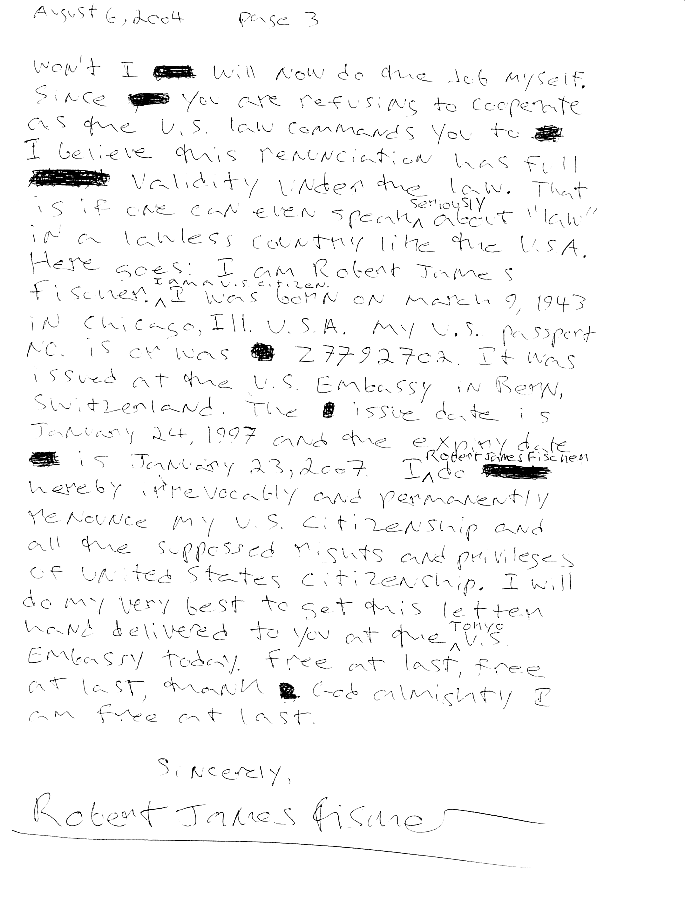 August 6, 2004 page 3
won't I will now do the job myself.
Since you are refusing to cooperate
as the U.S. law commands you to
I believe this renunciation has full
validity under the law. That
is if one can even speak seriously about "law"
in a lawless country like the U.S.A.
Here goes: I am Robert James
Fischer. I am a U.S. citizen. I was born on March 9, 1943
in Chicago, Ill. U.S.A. My U.S. passport
No. is or was Z7792702. It was
issued at the U.S. Embassy in Bern,
Switzerland. The issue date is
January 24, 1997 and the expiry date
is January 23, 2007. I Robert James Fischer do
hereby irrevocably and permanently
renounce my U.S. citizenship and
all the supposed rights and privileges
of United States citizenship. I will
do my very best to get this letter
hand delivered to you at the Tokyo U.S.
Embassy today. Free at last, free
at last, thank God almighty I
am free at last.
Sincerely,
Robert James Fischer